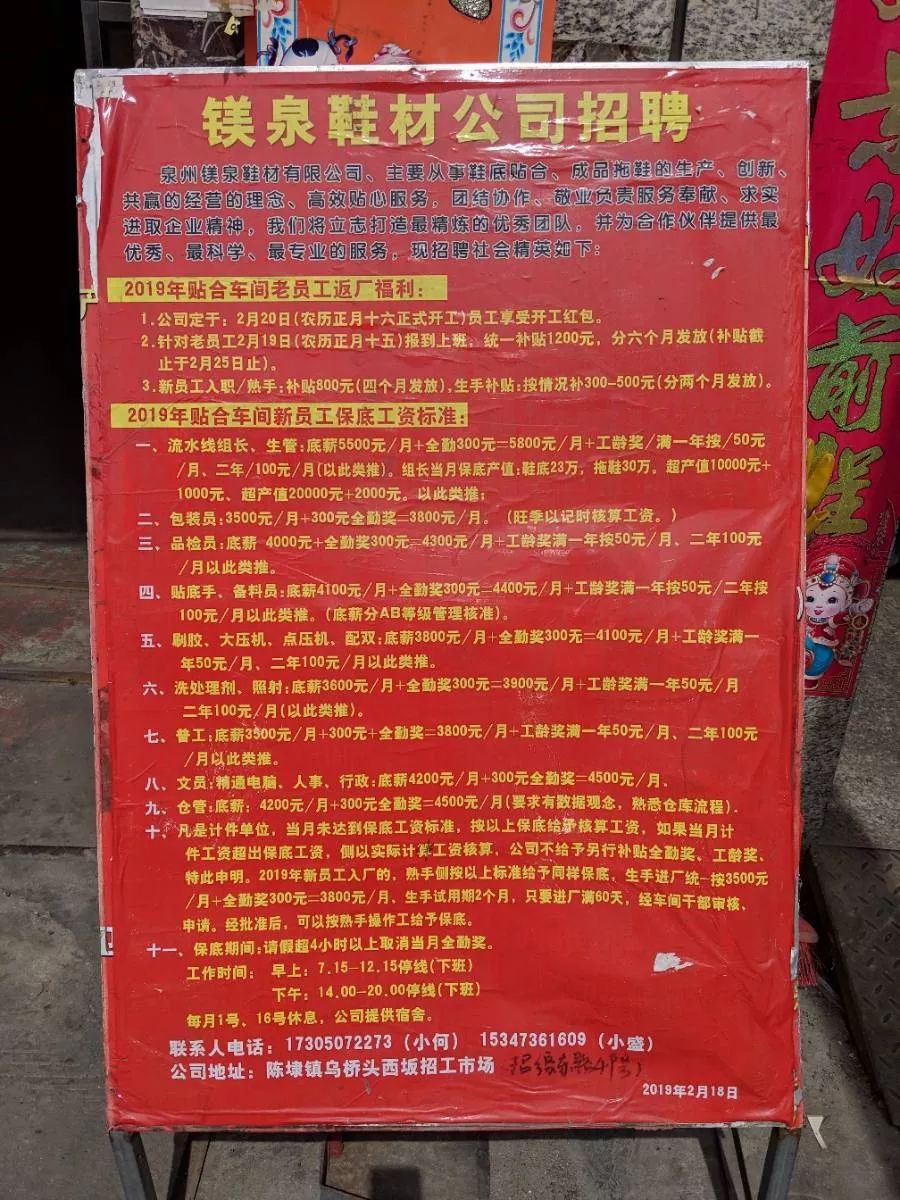 镁泉鞋材公司招聘
泉州镁泉鞋材有限公司、主要从事鞋底贴合、成品拖鞋的生产、创新、
共赢的经营的理念、高效贴心服务，团结协作、敬业负责服务奉献、求实
进取企业精神，我们将立志打造最精炼的优秀团队，并为合作伙伴提供最
优秀、最科学、最专业的服务，现招聘社会精英如下：
2019年贴合车间老员工返厂福利：
1.公司定于：2月20日(农历正月十六正式开工)员工享受开工红包。
2.针对老员工2月19日(农历正月十五)报到上班；统一补贴1200元，分六个月发放(补贴截
止于2月25日止)。
3.新员工入职/熟手：补贴800元(四个月发放)，生手补贴：按情况补300-500元(分两个月发放)。
2019年贴合车间新员工保底工资标准：
一、流水线组长、生管：底薪5500元/月+全勤300元=5800元/月+工龄奖/满一年按/50元
/月、二年/100元/月(以此类推)。组长当月保底产值：鞋底23万，拖鞋30万。超产值10000元+
1000元、超产值20000元+2000元。以此类推；
二、包装员：3500元/月+300元全勤奖=3800元/月。（旺季以记时核算工资。）
三、品检员：底薪 4000元+全勤奖300元=4300元/月+工龄奖满一年按50元/月、二年100元
/月以此类推。
四、贴底手、备料员：底薪4100元/月+全勤奖300元=4400元/月+工龄奖满一年按50元/二年按
100元/月以此类推。（底薪分AB等级管理核准）。
五、刷胶、大压机、点压机、配双：底薪3800元/月+全勤奖300元=4100元/月+工龄奖满一
年50元/月、二年100元/月以此类推。
六、洗处理剂、照射：底薪3600元/月+全勤奖300元=3900元/月+工龄奖满一年50元/月
二年100元/月(以此类推)。
七、普工：底薪3500元/月+300元+全勤奖=3800元/月+工龄奖满一年50元/月、二年100元
/月以此类推。
八、文员：精通电脑、人事、行政：底薪4200元/月+300元全勤奖=4500元/月、
九、仓管：底薪：4200元/月+300元全勤奖=4500元/月(要求有数据观念，熟悉仓库流程)、
十、凡是计件单位，当月未达到保底工资标准，按以上保底给予核算工资，如果当月计
件工资超出保底工资，侧以实际计算工资核算，公司不给予另行补贴全勤奖、工龄奖、
特此申明。2019年新员工入厂的，熟手侧按以上标准给予同样保底，生手进厂统一按3500元
/月+全勤奖300元=3800元/月，生手试用期2个月，只要进厂满60天，经车间干部审核、
申请。经批准后，可以按熟手操作工给予保底。
十一、保底期间：请假超4小时以上取消当月全勤奖。
工作时间： 早上：7.15-12.15停线(下班)
下午：14.00-20.00停线(下班)
每月1号、16号休息，公司提供宿舍。
联系人电话：17305072273（小何） 15347361609（小盛）
公司地址：陈埭镇乌桥头西坂招工市场
2019年2月18日
好
前
程